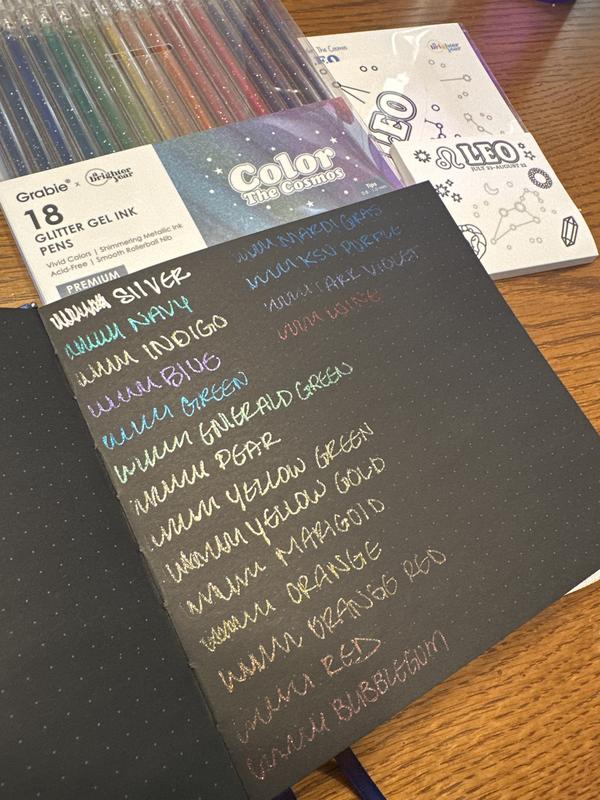 Grabie x Brighter year
18
GLITTER GEL INK
PENS
Vivid Colors | Shimmering Metallic Ink
Acid-Free | Smooth Rollerball Nib
PREMIUM
Color
The Cosmos
Tips
The Cosmos
LEO
Brighter year
LEO
LEO
JULY 23-AUGUST 22
SILVER
NAVY
INDIGO
BLUE
GREEN
EMERALD GREEN
PEAR
YELLOW GREEN
YELLOW GOLD
MARIGOLD
ORANGE
ORANGE RED
RED
BUBBLEGUM
MARDI GRAS
KSU PURPLE
DARK VIOLET
WINE